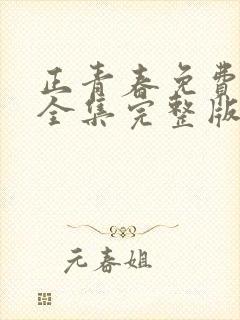 正青春免費
全集完整版
元春姐